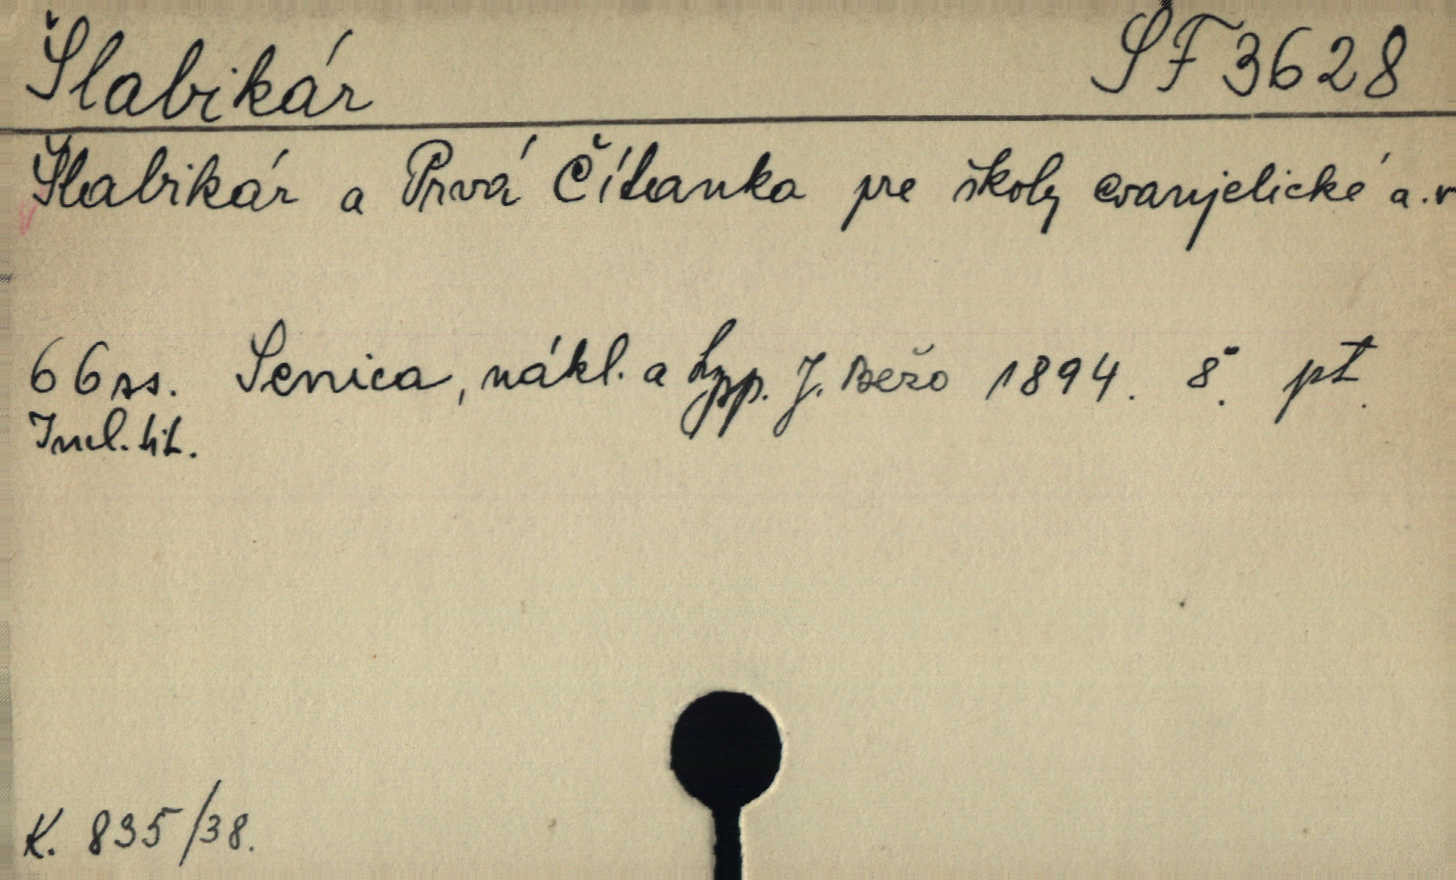 Šlabikár SF 3628
Šlabikár a Prvá Čítanka pre školy evanjelické a.v
66 ss. Senica, nákl. a typ. J. Bežo 1894. 8°. pł.
Incl. tit.
K. 835/38.